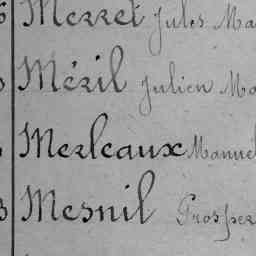 Merret Jules Ma
Méril Julien Ma
Merleaux Manuel
3 Mesnil Prosper